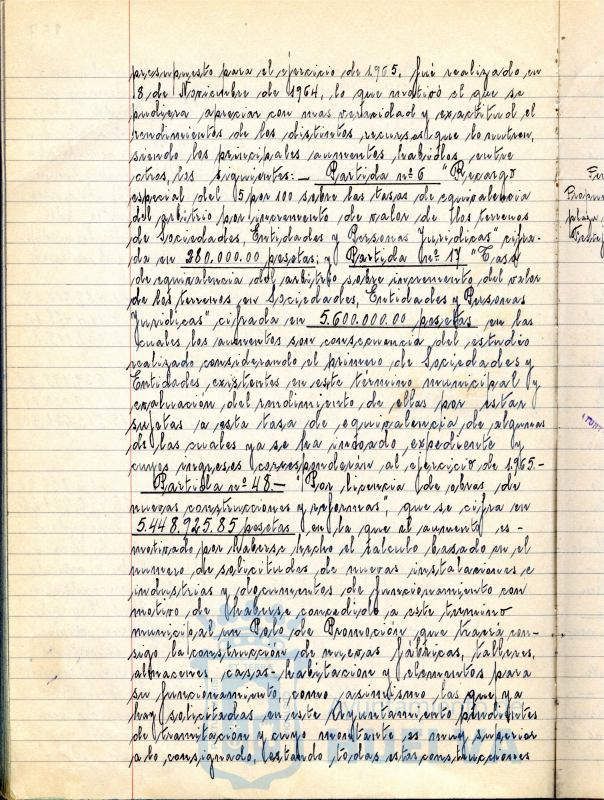 presupuesto para el ejercicio de 1.965, fué realizado en
18 de Noviembre de 1964, lo que motivó el que se
pudiera apreciar con mas veracidad y exactitud el
rendimientos de los distintos recursos que lo nutren,
siendo los principales aumentos habidos, entre
otros, los siguientes:— Partida nº 6 "Recargo
especial del 5 por 100 sobre las tasas de equivalencia
del arbitrio por incremento de valor de llos terrenos
de Sociedades, Entidades y Personas Juridicas" cifra-
da en 280.000.00 pesetas; y Partida nº 17 "Tasa
de equivalencia del arbitrio sobre incremento del valor
de los terrenos en Sociedades, Entidades y Personas
Juridicas" cifrada en 5.600.000.00 pesetas en las
cuales los aumentos son consecuencia del estudio
realizado considerando el primero de Sociedades y
Entidades existentes en este término municipal y
evaluación del rendimiento de ellas por estar
sujetas a esta tasa de equivalencia de algunas
de las cuales ya se ha incoado expediente y
cuyos ingresos corresponderán al ejercicio de 1.965.—
Partida nº 48.— "Por licencia de obras de
nuevas construcciones y reformas", que se cifra en
5.448.925.85 pesetas, en la que el aumento es-
motivado por haberse hecho el calculo basado en el
numero de solicitudes de nuevas instalaciones e
industrias y documentos de funcionamiento con
motivo de haberse concedido a este termino
municipal un Polo de Promoción que traerá con-
sigo la construcción de nuevas fábricas, talleres,
almacenes, casas-habitación y elementos para
su funcionamiento, como asimismo las que ya
hay solicitadas en este Ayuntamiento pendientes
de tramitación y cuyo montante es muy superior
a lo consignado, estando todas estas construcciones
Ayuntamiento de
HUELVA